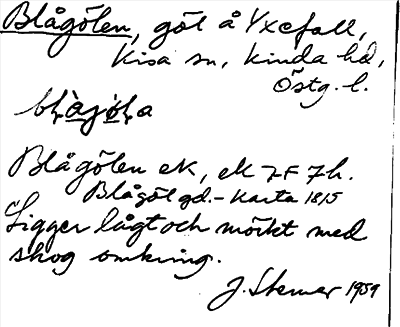 Blågölen, göl å Yxefall,
Kisa sn, Kinda hd,
Östg. l.
Blågölen ek, ek 7F 7h.
Blågöl gd. – Karta 1815
Ligger lågt och mörkt med
skog omkring.
J. Sterner 1959